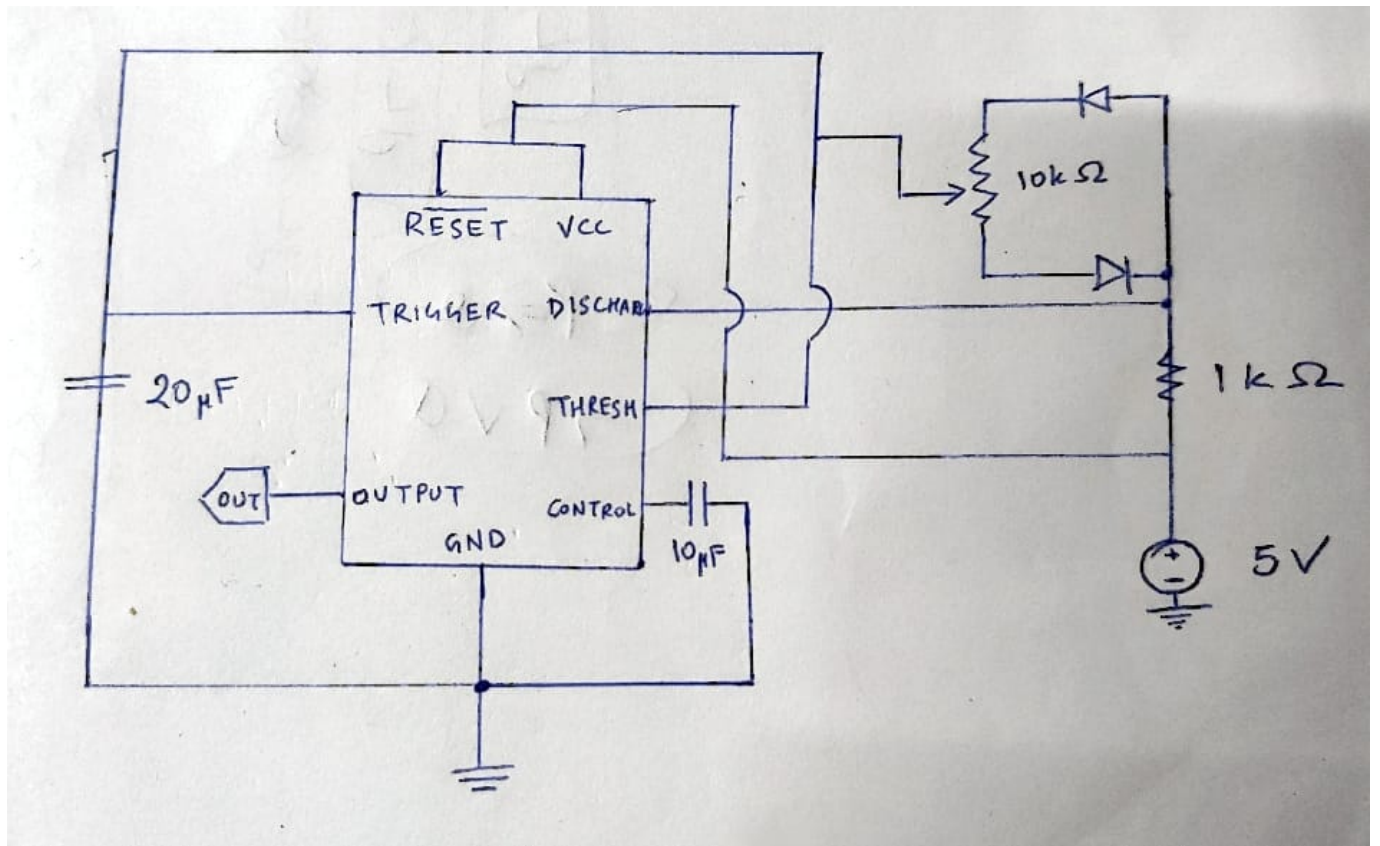 RESET VCC
10k Ω
TRIGGER DISCHAR
20μF
1k Ω
THRESH
OUT
OUTPUT
CONTROL
GND
10μF
+
−
5V